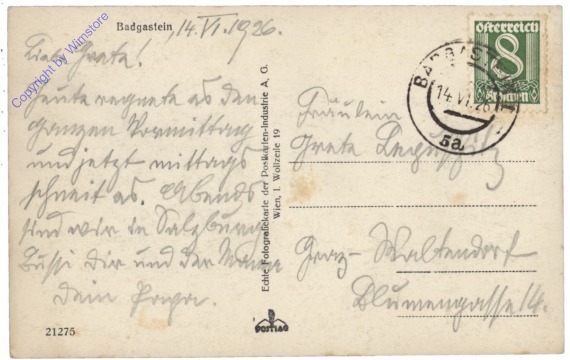 Badgastein, 14.VI.1926.
Liebe Greta!
Heute regnete es den
ganzen Vormittag
und jetzt mittags
schneit es. Abends
sind wir in Salzburg
Bussi dir und der Mama
Dein Papa.
21275
Copyright by Wimstore
Echte Fotografiekarte der Postkarten-Industrie A. G.
Wien, I. Wollzeile 19
POSTIAG
Österreich
8
Groschen
BADGASTEIN
14.VI.26
5a
Fräulein
Grete
Graz-Waltendorf
Blumengasse 14.